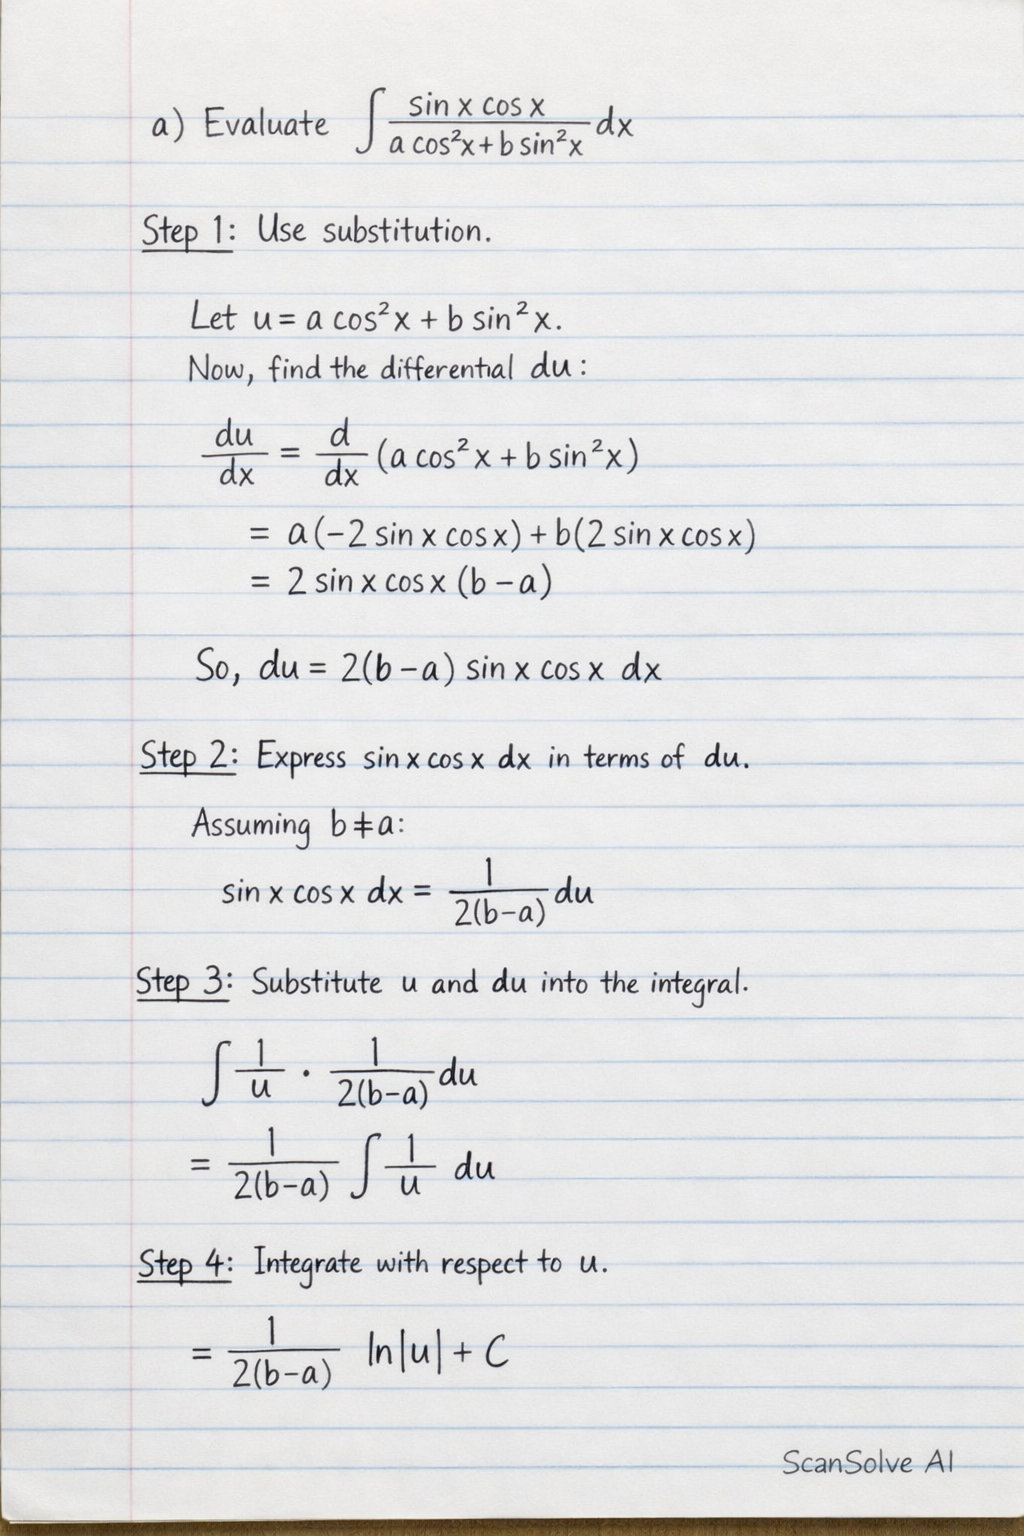 a) Evaluate ∫ (sin x cos x)/(a cos²x + b sin²x) dx
Step 1: Use substitution.
Let u = a cos²x + b sin²x.
Now, find the differential du:
du/dx = d/dx (a cos²x + b sin²x)
= a(-2 sin x cos x) + b(2 sin x cos x)
= 2 sin x cos x (b - a)
So, du = 2(b - a) sin x cos x dx
Step 2: Express sin x cos x dx in terms of du.
Assuming b ≠ a:
sin x cos x dx = 1/(2(b-a)) du
Step 3: Substitute u and du into the integral.
∫ 1/u · 1/(2(b-a)) du
= 1/(2(b-a)) ∫ 1/u du
Step 4: Integrate with respect to u.
= 1/(2(b-a)) ln|u| + C
ScanSolve AI